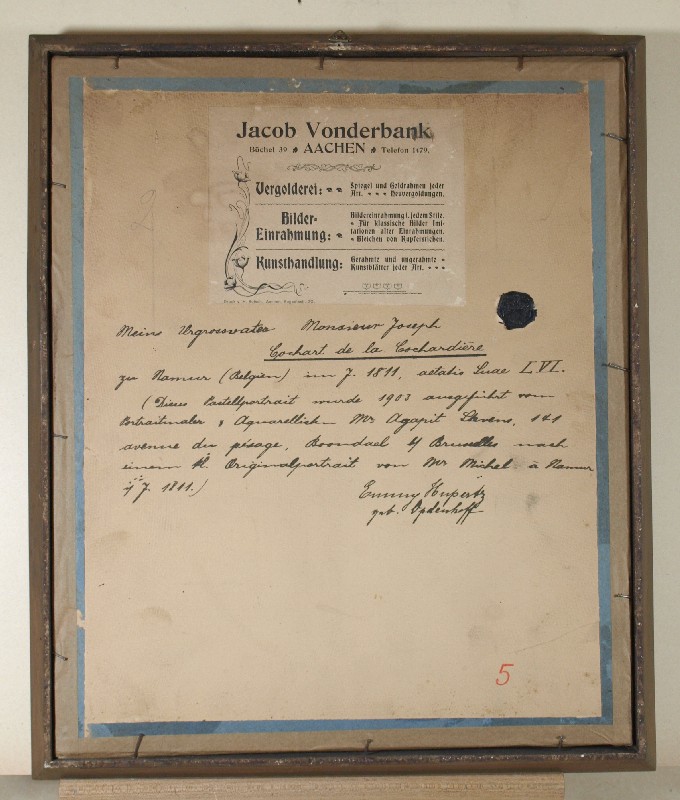 Jacob Vonderbank
Büchel 39 AACHEN Telefon 1479.
Vergolderei: Spiegel und Goldrahmen jeder
Art. Neuvergoldungen.
Bilder-
Einrahmung:
Bildereinrahmung i. jedem Stile.
Für klassische Bilder Imi-
tationen alter Einrahmungen.
Bleichen von Kupferstichen.
Kunsthandlung: Gerahmte und ungerahmte
Kunstblätter jeder Art.
Meine Urgrossvater Monsieur Joseph
Cochart de la Cochardière
zu Namur (Belgien) im J. 1811, aetatis suae LVI.
(Dieses Pastellportrait wurde 1903 ausgeführt vom
Portraitmaler & Aquarellist Mr Agapit Stevens, 141
avenue du pésage, Boondael b/ Bruxelles nach
einem kl. Originalportrait von Mr Michel à Namur
J. 1811.)
Emmy Hupertz
geb. Opdenhoff
5